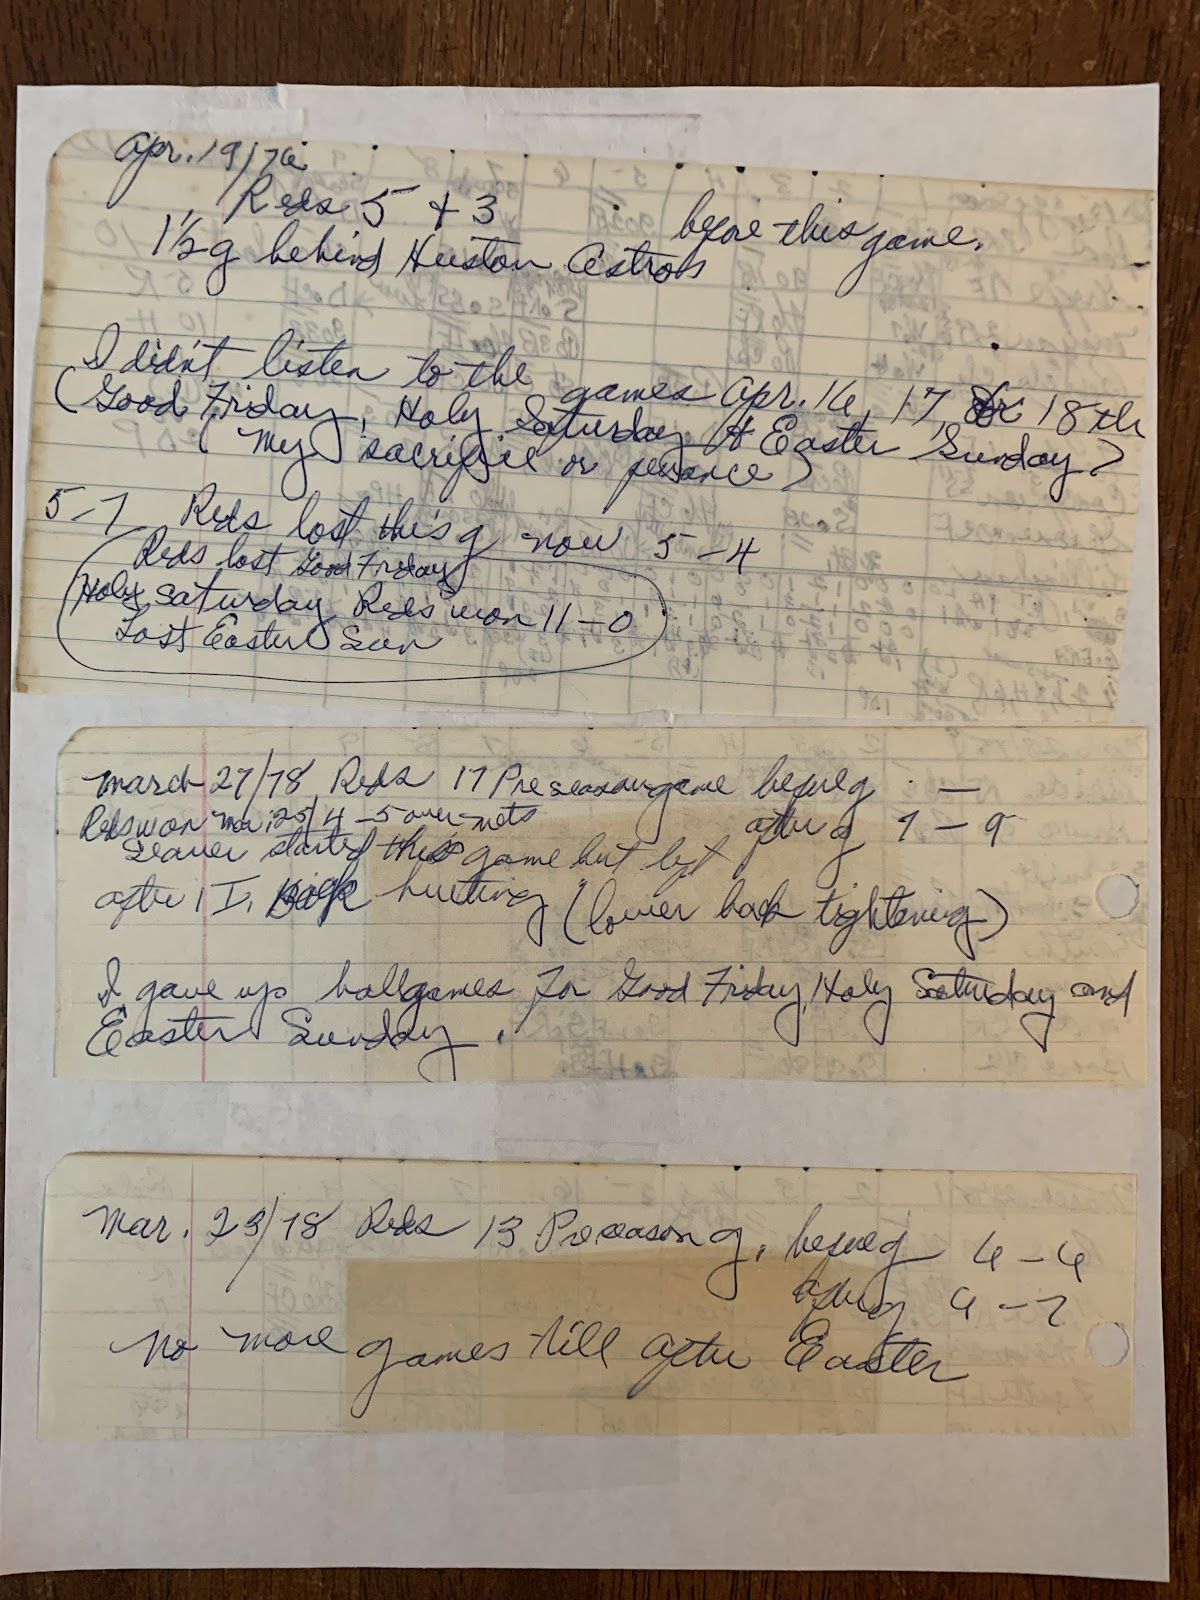 Apr. 19/76
Reds 5 + 3 before this game.
1½g behind Huston Astros
I didn't listen to the games Apr. 16, 17, or 18th
(Good Friday, Holy Saturday & Easter Sunday)
(My sacrifice or penance)
5-7 Reds lost this g now 5-4
Reds lost Good Friday
Holy Saturday Reds won 11-0
Lost Easter Sun
March 27/78 Reds 17 Preseason game before g —
Reds won Mar. 25/ 4-5 over Mets after g 9-9
Seaver started this game but left
after 1 I, hurting (lower back tightening)
I gave up ballgames for Good Friday, Holy Saturday and
Easter Sunday.
Mar. 23/78 Reds 13 Preseason g. before g 6-6
after g 6-7
No more games till after Easter